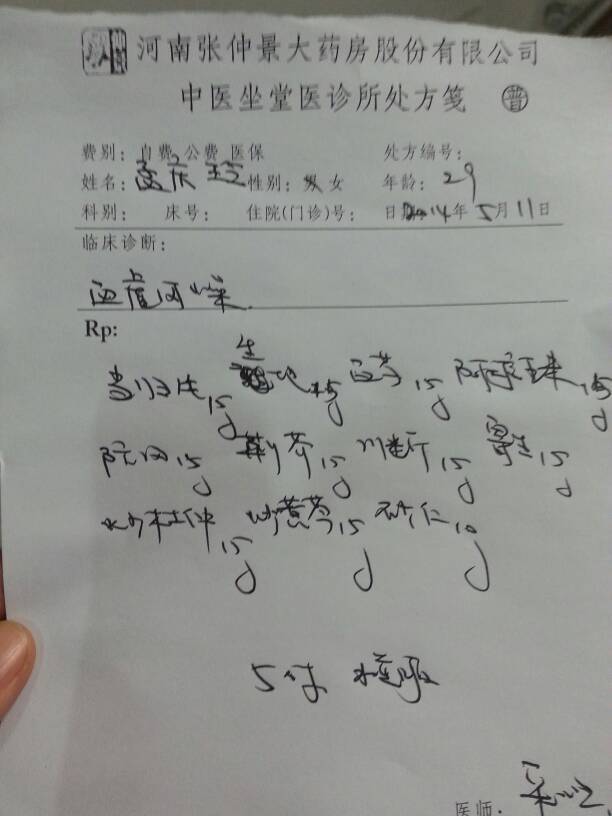 河南张仲景大药房股份有限公司
中医坐堂医诊所处方笺 普
费别: 自费 公费 医保 处方编号:
姓名: 孟庆玲 性别: 男 女 年龄: 29
科别: 床号: 住院(门诊)号: 日期2014年5月11日
临床诊断:
血虚风燥
Rp:
当归 15g 生地 15g 白芍 15g 阿胶珠 15g
防风 15g 荆芥 15g 川断 15g 寄生 15g
炒杜仲 15g 炒黄芩 15g 砂仁 10g
5付 水煎服
医师: